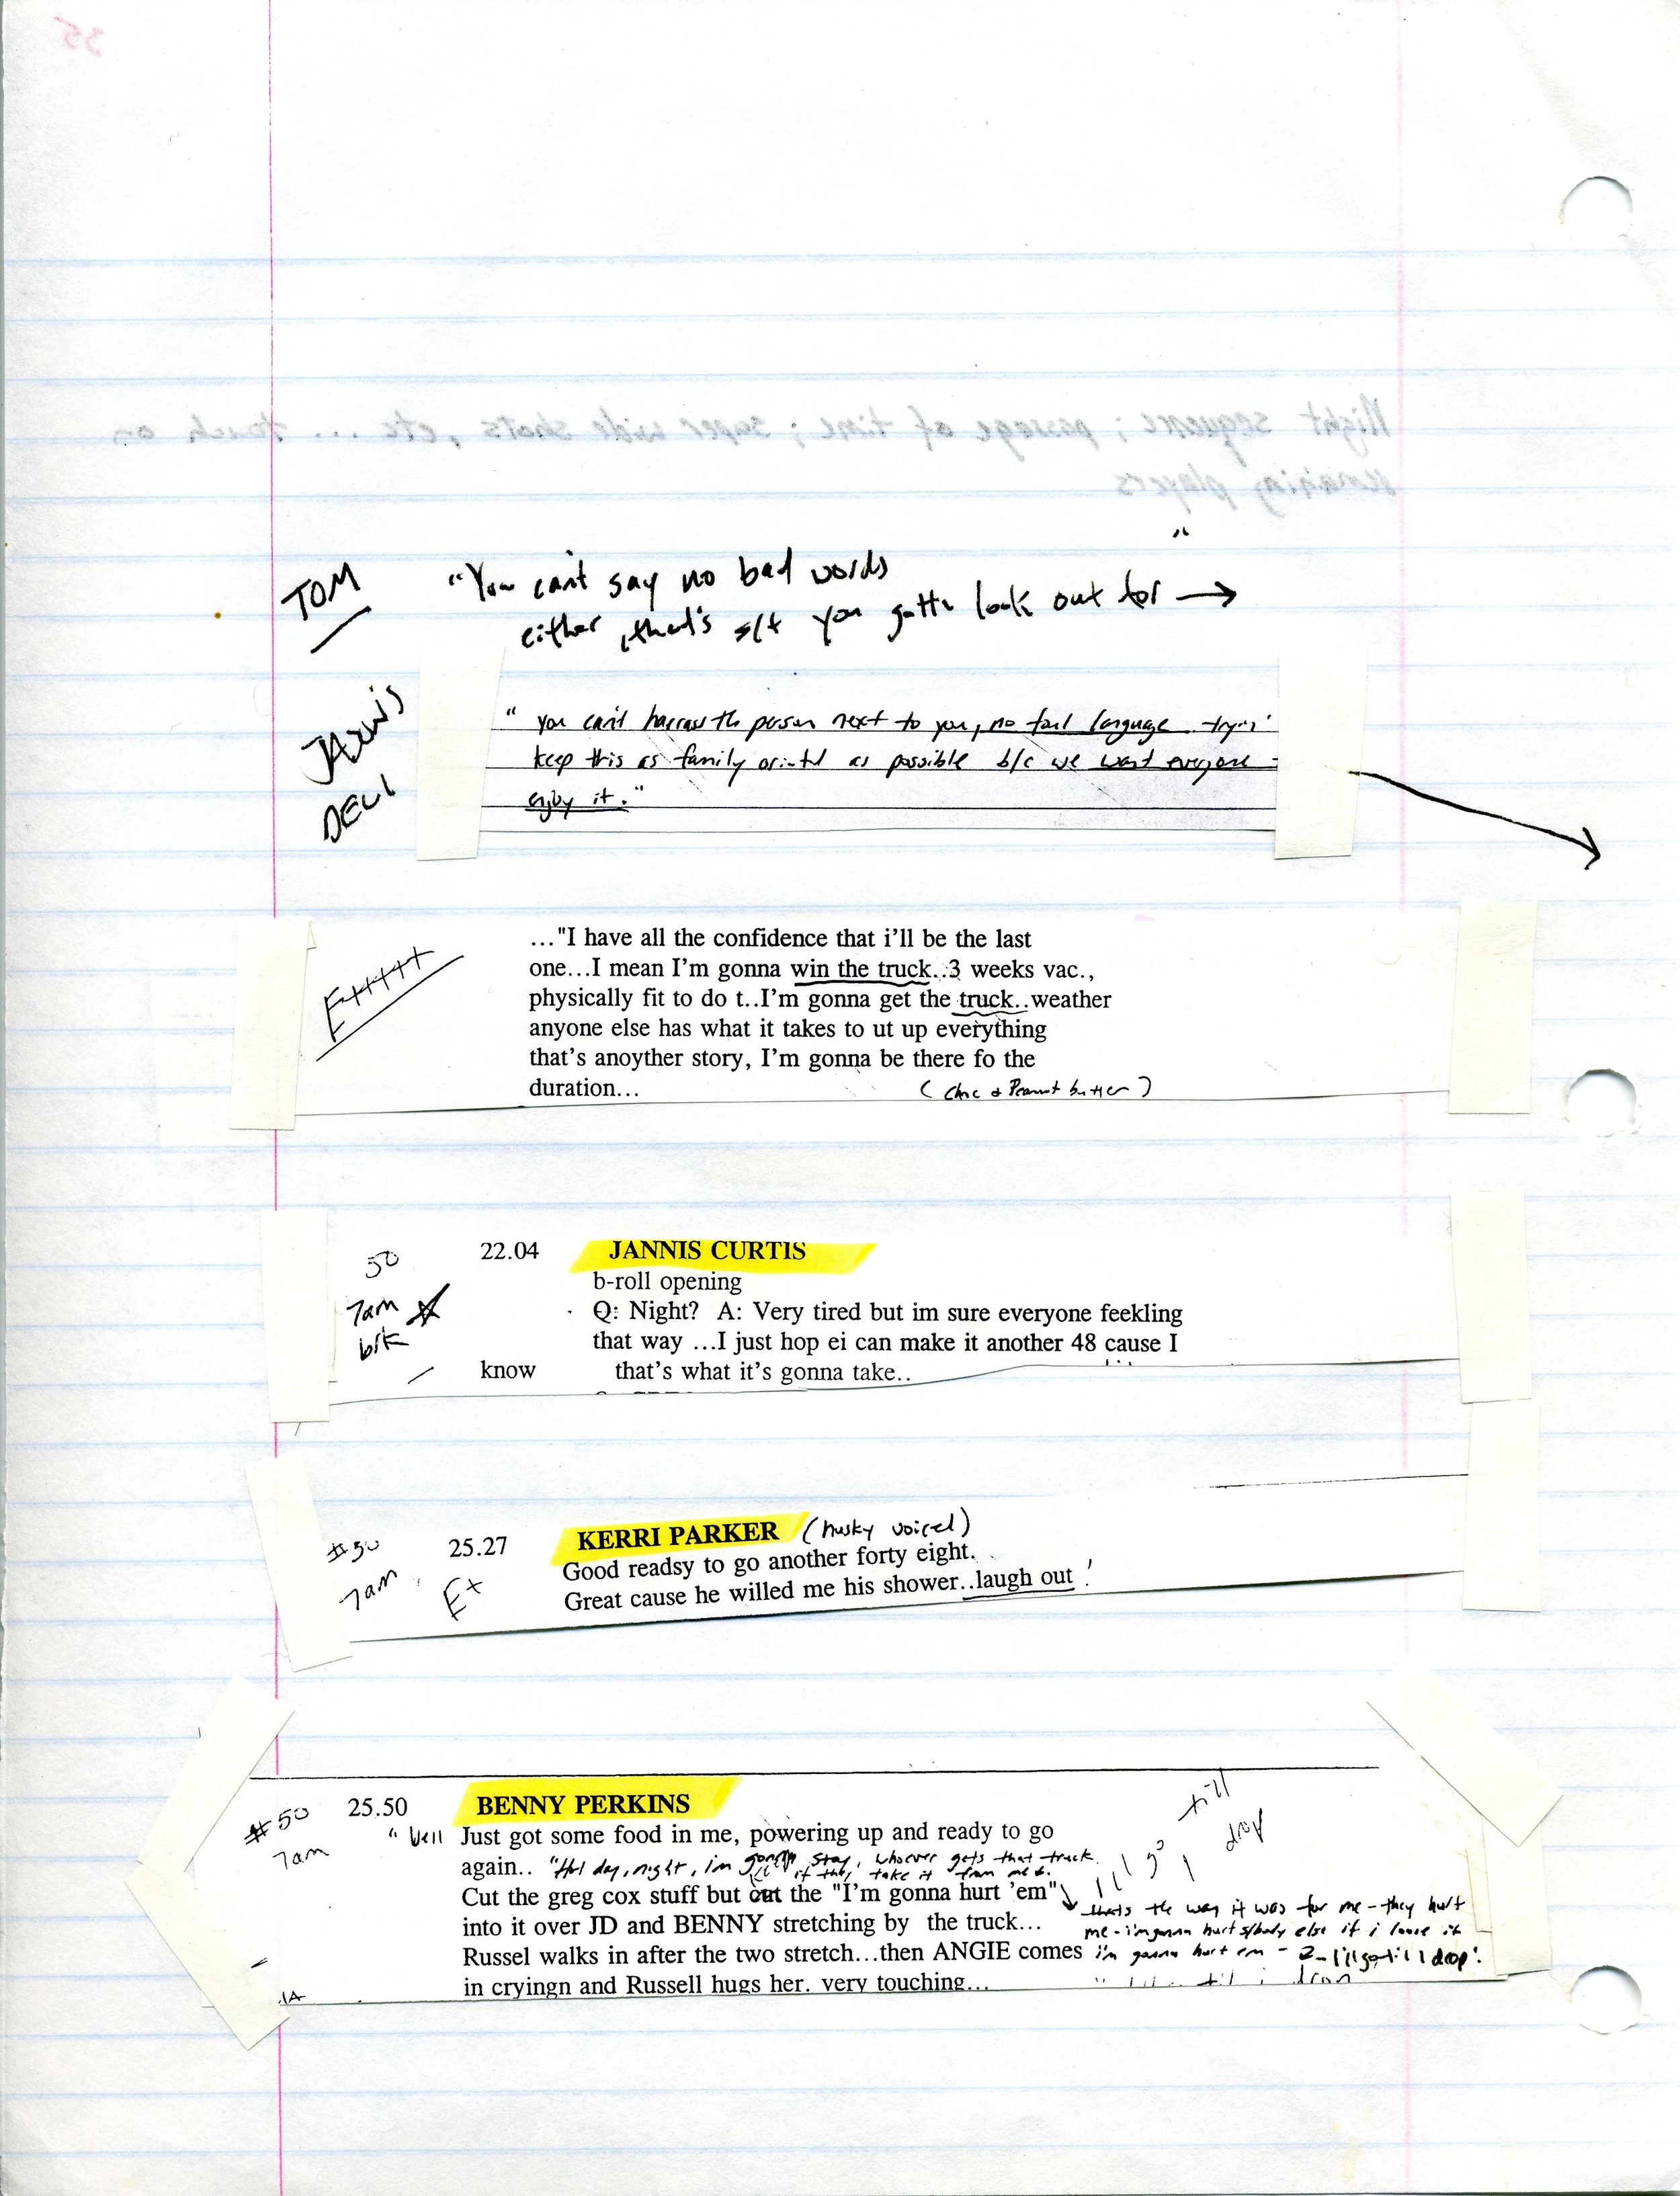 35
Night sequence ; passage of time ; super wide shots, etc ... touch on
remaining players
TOM
"You can't say no bad words "
either, that's s/t you gotta look out for →
JANNIS
DELI
" you can't harrass the person next to you, no foul language tryin'
keep this as family oriented as possible b/c we want everyone
enjoy it."
E+++++
..."I have all the confidence that i'll be the last
one...I mean I'm gonna win the truck..3 weeks vac.,
physically fit to do t..I'm gonna get the truck..weather
anyone else has what it takes to ut up everything
that's anoyther story, I'm gonna be there fo the
duration...
( choc & Peanut butter )
50
7am
brk
22.04
JANNIS CURTIS
b-roll opening
Q: Night? A: Very tired but im sure everyone feekling
that way ...I just hop ei can make it another 48 cause I
know that's what it's gonna take..
#50
7am
E+
25.27
KERRI PARKER (husky voiced)
Good readsy to go another forty eight.
Great cause he willed me his shower..laugh out !
#50
7am
25.50
BENNY PERKINS
"Well Just got some food in me, powering up and ready to go
again.. "Hol day, night, im gonna stay, whoever gets that truck
if they take it from me
Cut the greg cox stuff but cut the "I'm gonna hurt 'em"
into it over JD and BENNY stretching by the truck...
Russel walks in after the two stretch...then ANGIE comes
in cryingn and Russell hugs her. very touching...
I'll go till
I drop
thats the way it was for me - they hurt
me - i'm gonna hurt s/body else if i loose it
i'm gonna hurt em - 2 - I'll go till I drop!
1A